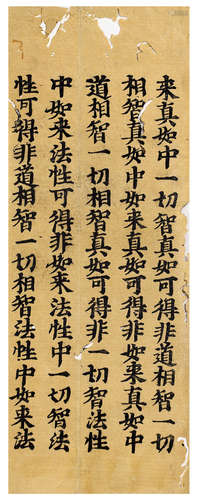 来真如中一切智真如可得非道相智一切
相智真如中如来真如可得非如来真如中
道相智一切相智真如可得非一切智法性
中如来法性可得非如来法性中一切智法
性可得非道相智一切相智法性中如来法